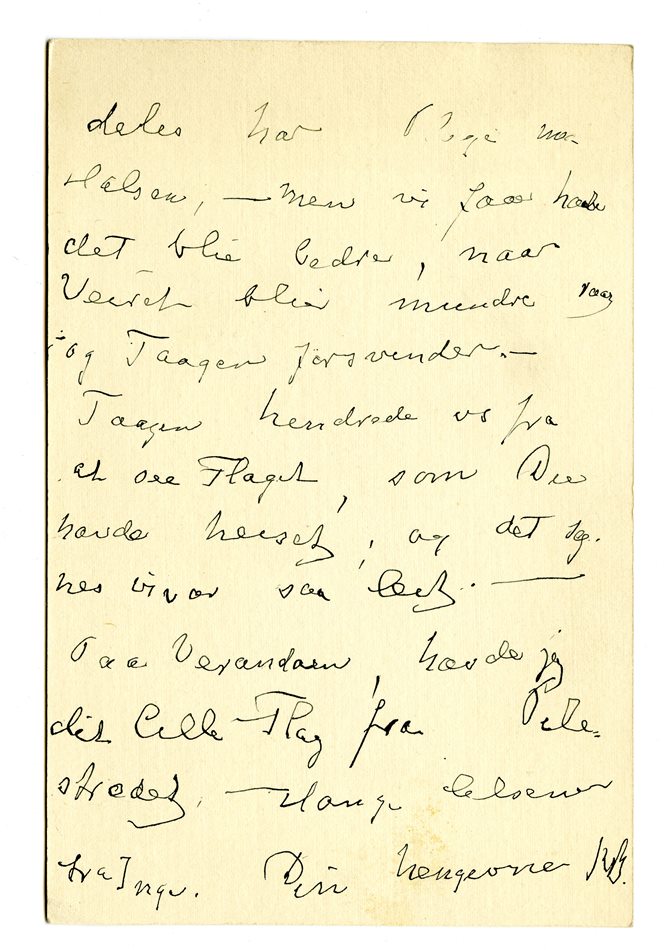 deles har Pleje no-
Halsen, – men vi faar haabe
det blir bedre, naar
Veiret blir mindre
og Taagen forsvinder. –
Taagen hindrede os fra
at see Flaget, som Du
havde heiset, og det sy-
nes vi var saa leit. –
Paa Verandaen, havde jeg
det lille Flag fra Pile-
stredet, – Mange hilsener
fra Inga. Din hengivne